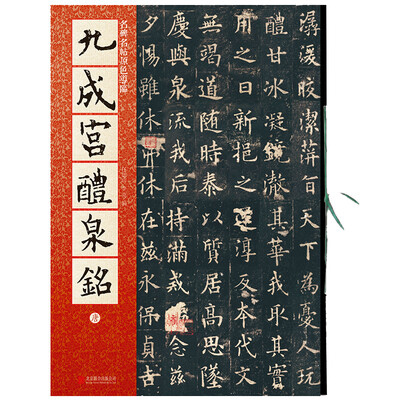 名碑名帖原色導臨
九成宮醴泉銘
唐
潺湲皎潔萍旨天下為憂人玩
醴甘冰凝鏡澈其華我取其實
用之日新挹之淳反本代文
無竭道随時泰以質居高思墜
慶與泉流我后持滿戒念兹
夕惕雖休弗休在兹永保貞吉